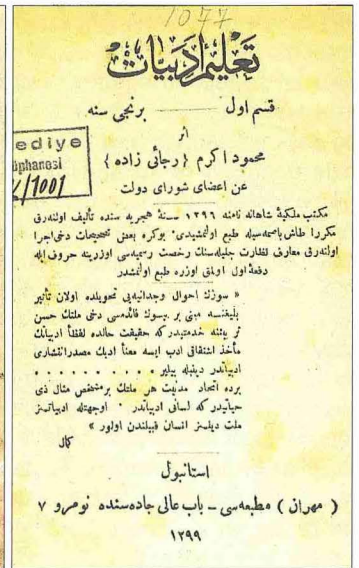 1077
تعلیم ادبیات
قسم اول — برنجی سنه
اثر
محمود اكرم { رجائی زاده }
عن اعضای شورای دولت
ediye
üphanesi
K/1001
مكتب ملكیۀ شاهانه نامنه ١٢٩٦ سنۀ هجریه سنده تألیف اولنه‌رق
مكررا طاش باصمه‌سیله طبع اولنمشیدی. بوكره بعض تصحیحات دخی اجرا
اولنه‌رق معارف نظارت جلیله‌سنك رخصت رسمیه‌سی اوزرینه حروف ایله
دفعۀ اول اولمق اوزره طبع اولنمشدر
« سوزك احوال وجدانیه‌یی تحویلده اولان تأثیر
بلیغنسه مبنی بر بیوك فائده‌سی دخی ملتك حسن
تربیتنه خدمتیدر كه حقیقت حالده لفظاً ادبیاتك
مأخذ اشتقاقی ادب ایسه معناً ادبك مصدر انتشاری
ادبیاتدر دینیله بیلیر . . . . . . . . .
برده اتحاد مدنیت هر ملتك بر مشخص مثال ذی
حیاتیدر كه لسانی ادبیاتدر . اوجهتله ادبیاتسز
ملت دیلسز انسان قبیلندن اولور »
كمال
استانبول
( مهران ) مطبعه‌سی – باب عالی جاده‌سنده نومرو ٧
١٢٩٩